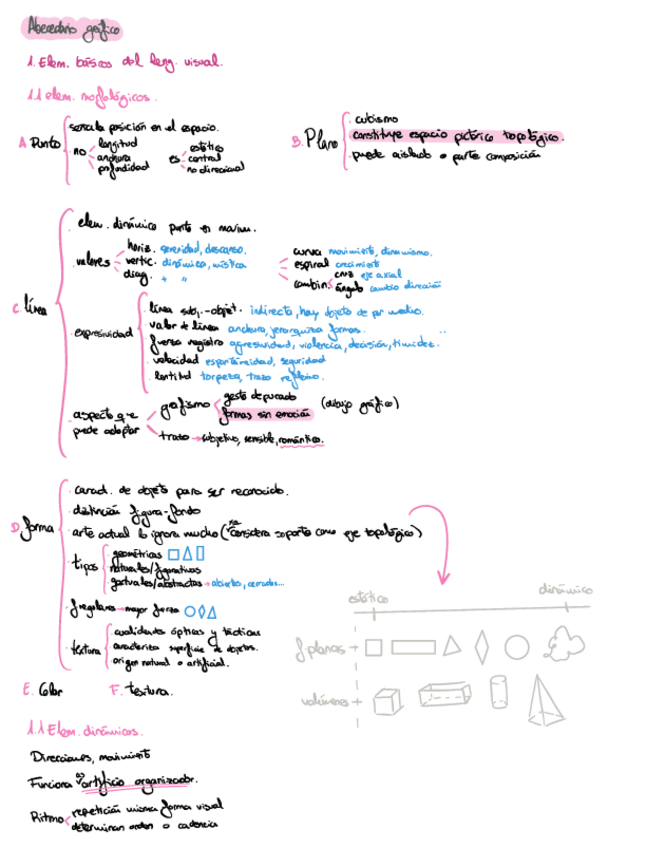 Abecedario gráfico
1. Elem. básicos del leng. visual.
1.1 elem. morfológicos.
A Punto
señala posición en el espacio.
no
longitud
anchura
profundidad
es
estático
central
no direccional
B. Plano
. cubismo
. constituye espacio pictórico topológico.
. puede aislado o parte composición
C. línea
. elem. dinámico punto en movim.
. valores
horiz. serenidad, descanso.
vertic. dinámica, mística
diag. " "
curva movimiento, dinamismo.
espiral crecimiento
combin.
cruz eje axial
ángulo cambio dirección
. expresividad
línea subj.-objet. indirecta, hay objeto de por medio.
valor de línea anchura, jerarquiza formas.
fuerza registro agresividad, violencia, decisión, timidez.
velocidad espontaneidad, seguridad
lentitud torpeza, trazo reflexivo.
. aspecto que puede adoptar
grafismo
gesto depurado
formas sin emoción
(dibujo gráfico)
trazo → subjetivo, sensible, romántico.
D. forma
. caract. de objeto para ser reconocido.
. distinción figura-fondo
. arte actual lo ignora mucho (no considera soporte como eje topológico)
. tipos
geométricas
naturales/figurativas
gestuales/abstractas → abiertas, cerradas...
. f regulares → mayor fuerza
. textura
. cualidades ópticas y táctiles
. caracteriza superficie de objetos.
. origen natural o artificial.
estático
dinámico
f. planas
volúmenes
E. Color
F. Textura.
1.1 Elem. dinámicos.
Direcciones, movimiento
Funciona as artificio organizador.
Ritmo
repetición misma forma visual
determinan orden o cadencia